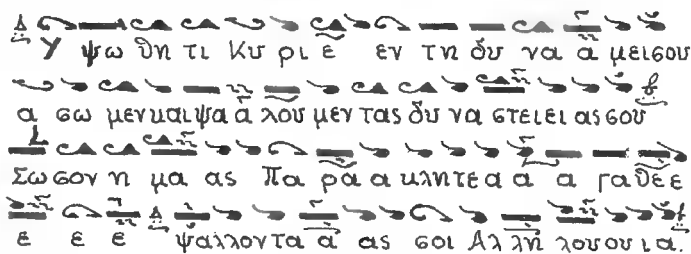 Υ ψω θη τι Κυ ρι ε εν τη δυ να α μει σου
α σω μεν και ψα α λου μεν τας δυ να στειει ας σου
Σω σον η μα ας Πα ρα α κλη τε α α α γα θε ε
ε ε ε ψαλλοντα α ας σοι Αλ λη λου ου ι α.